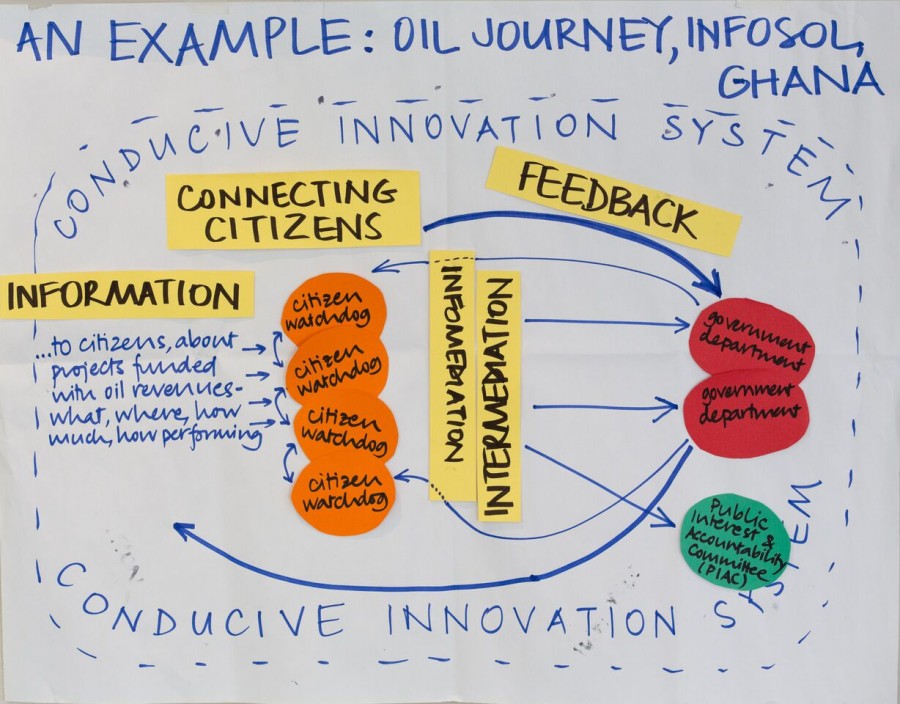 AN EXAMPLE: OIL JOURNEY, INFOSOL,
GHANA
CONDUCIVE INNOVATION SYSTEM
CONNECTING
CITIZENS
FEEDBACK
INFORMATION
...to citizens, about
projects funded
with oil revenues-
what, where, how
much, how performing
citizen
watchdog
citizen
watchdog
citizen
watchdog
citizen
watchdog
INFOMEDIATION
INTERMEDIATION
government
department
government
department
Public
Interest &
Accountability
Committee
(PIAC)
CONDUCIVE INNOVATION SYSTEM